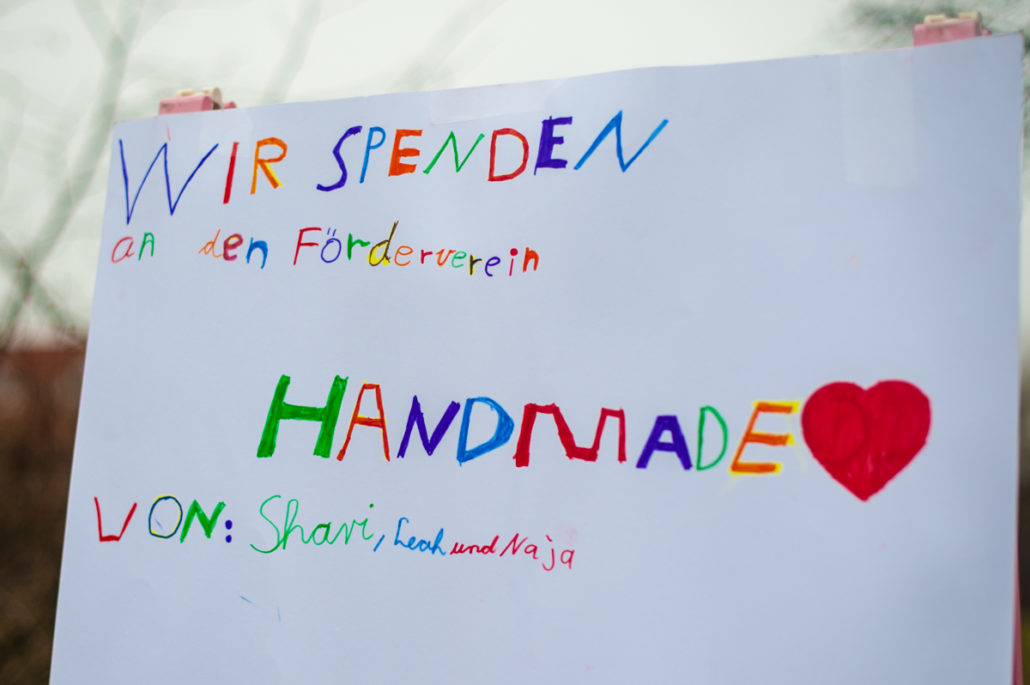 WIR SPENDEN
an den Förderverein
HANDMADE
VON: Shari, Leah und Naja